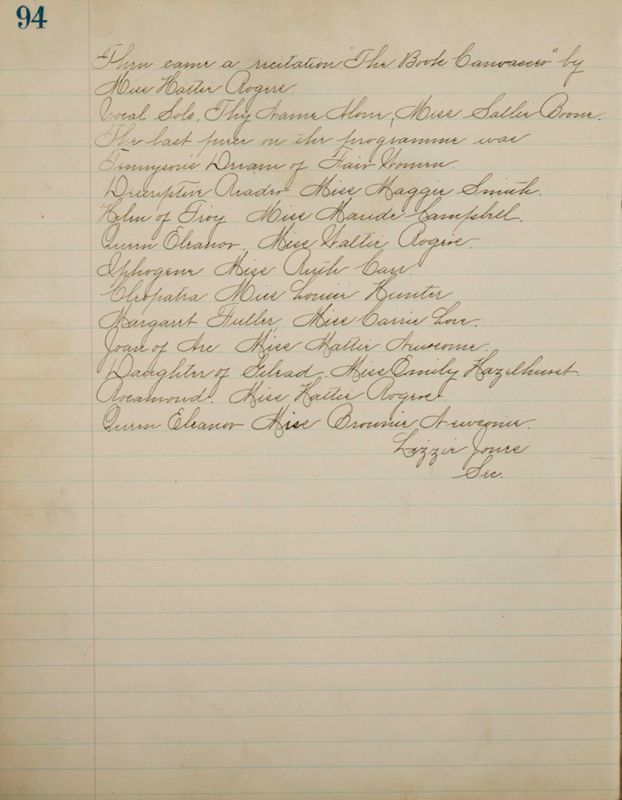 94
Then came a recitation "The Book Canvasers" by
Miss Hattie Rogers
Vocal Solo, Thy Name Alone, Miss Sallie Boone.
The last piece on the programme was
Tennyson's Dream of Fair Women.
Descriptive Reader Miss Maggie Smith.
Helen of Troy Miss Maude Campbel.
Queen Eleanor, Miss Hattie Rogers.
Iphogene Miss Ruth Carr.
Cleopatra Miss Louise Hunter
Margaret Fuller, Miss Carrie Love.
Joan of Arc. Miss Mattie Newcome.
Daughter of Gilead. Miss Emily Hazelhurst.
Rosamond. Miss Hattie Rogers.
Queen Eleanor Miss Brownie Newcome.
Lizzie Jones
Sec.